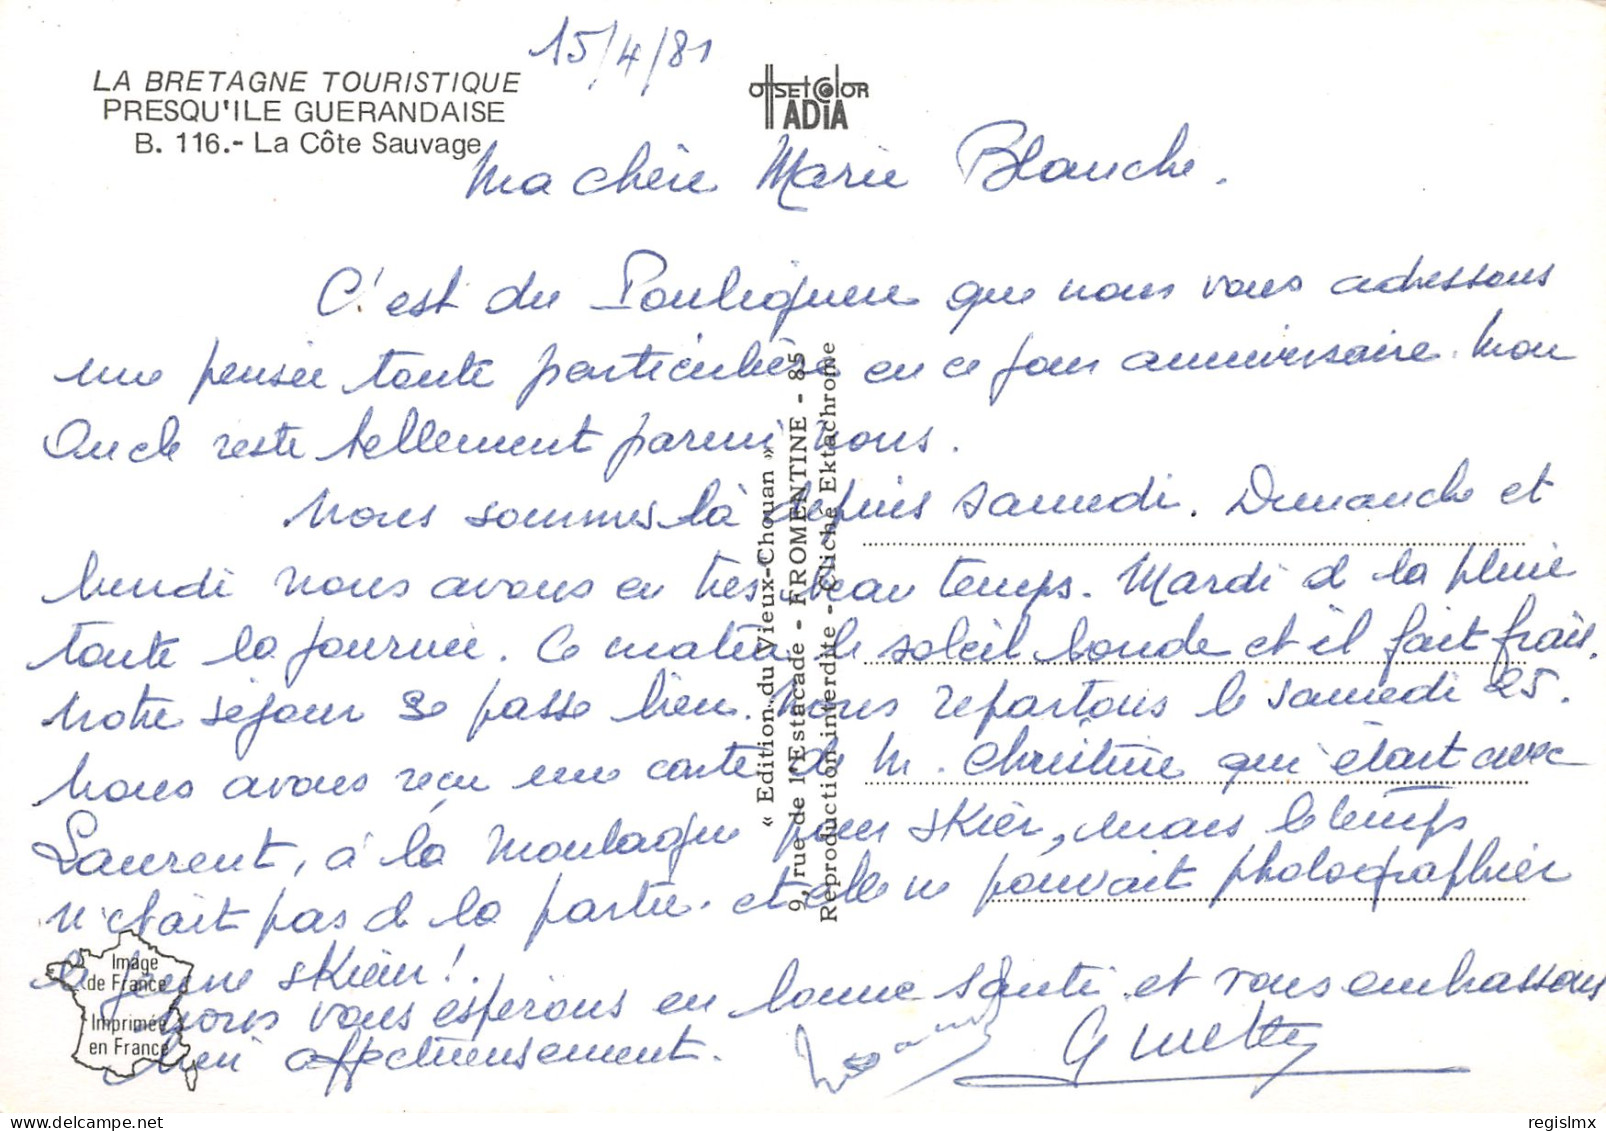 15/4/81
LA BRETAGNE TOURISTIQUE
PRESQU'ILE GUERANDAISE
B. 116.- La Côte Sauvage
OffSEtColOR
ADiA
Ma chère Marie Blanche.
C'est du Pouliguen que nous vous adressons
une pensée toute particulière en ce jour anniversaire. Mon
Oncle reste tellement parmi nous.
Nous sommes là depuis samedi. Dimanche et
lundi nous avons eu très beau temps. Mardi de la pluie
toute la journée. Ce matin le soleil boude et il fait frais.
Notre séjour se passe bien. Nous repartons le samedi 25.
Nous avons reçu une carte de M. Christine qui était avec
Laurent, à la montagne pour skier, mais le temps
n'était pas de la partie. et elle ne pouvait photographier
le jeune skieur !
Nous vous espérons en bonne santé et vous embrassons
bien affectueusement.
Image
de France
Imprimée
en France
« Edition du Vieux-Chouan »
9, rue de l'Estacade - FROMENTINE - 85
Reproduction interdite - Cliché Ektachrome
regislmx